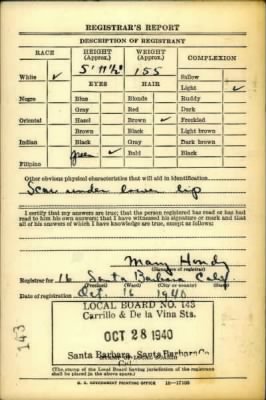 REGISTRAR'S REPORT
DESCRIPTION OF REGISTRANT
RACE HEIGHT (Approx.) WEIGHT (Approx.) COMPLEXION
5' 11½ 155
White ✓ Sallow
EYES HAIR Light ✓
Negro Blue Blonde Ruddy
Gray Red Dark
Oriental Hazel Brown ✓ Freckled
Brown Black Light brown
Indian Black Gray Dark brown
green ✓ Bald Black
Filipino
Other obvious physical characteristics that will aid in identification
Scar under lower lip
I certify that my answers are true; that the person registered has read or has had
read to him his own answers; that I have witnessed his signature or mark and that
all of his answers of which I have knowledge are true, except as follows:
Mary
(Signature of registrar)
Registrar for 16 Santa Barbara Calif
(Precinct) (Ward) (City or county) (State)
Date of registration Oct. 16 1940
LOCAL BOARD NO. 143
Carrillo & De la Vina Sts.
OCT 28 1940
Santa Barbara, Santa Barbara Co.
Cal.
(The stamp of the Local Board having jurisdiction of the registrant
shall be placed in the above space.)
U. S. GOVERNMENT PRINTING OFFICE 16—17105
143